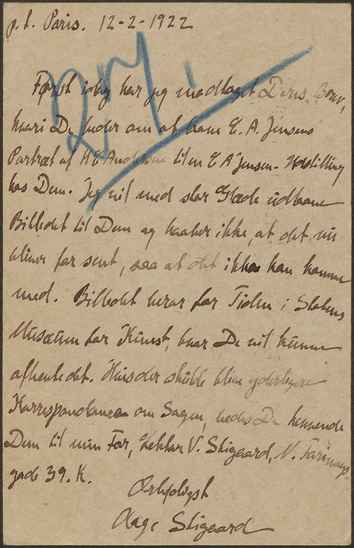 p.t. Paris. 12-2-1922
Først idag har jeg modtaget Deres Brev,
hvori De beder om at laane E. A. Jensens
Portræt af H C Andersen til en E A Jensen-Udstilling
hos Dem. Jeg vil med stor Glæde udlaane
Billedet til Dem og haaber ikke, at det nu
bliver for sent, saa at det ikke kan komme
med. Billedet beror for Tiden i Statens
Musæum for Kunst, hvor De vil kunne
afhente det. Hvis der skulde blive yderligere
Korrespondance om Sagen, bedes De henvende
Dem til min Far, Hektor V. Stigaard, N. Farimags-
gade 39. K.
Ærbødigst
Aage Stigaard